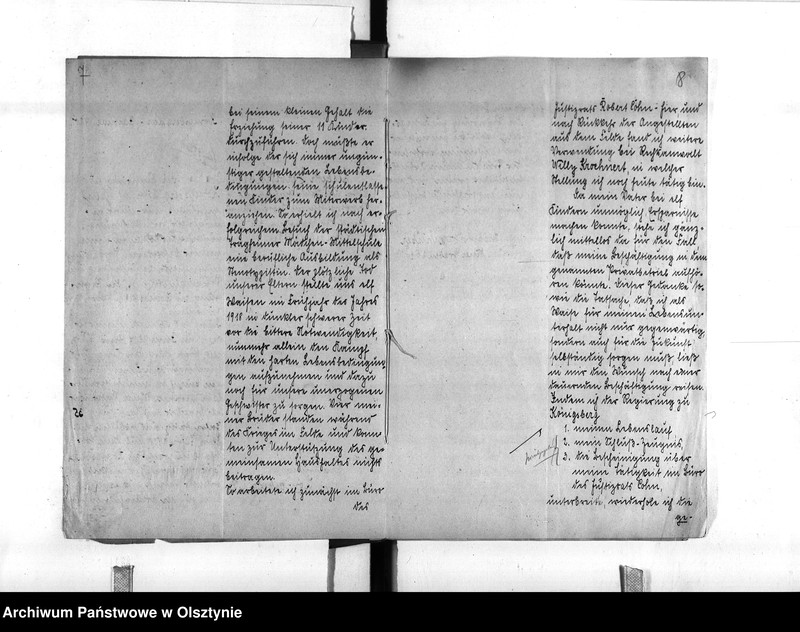 bei seinem kleinen Gehalt die
Erziehung seiner 11 Kinder
durchzuführen. Doch mußte er
infolge der sich immer ungün-
stiger gestaltenden Lebensbe-
dingungen seine schulentlasse-
nen Kinder zum Miterwerb her-
anziehen. So erhielt ich nach er-
folgreichem Besuch der städtischen
Tragheimer Mädchen-Mittelschule
eine berufliche Ausbildung als
Stenotypistin. Der plötzliche Tod
unserer Eltern stellte uns elf
Waisen im Frühjahr des Jahres
1918 in dunkler schwerer Zeit
vor die bittere Notwendigkeit,
nunmehr allein den Kampf
mit den harten Lebensbedingun-
gen aufzunehmen und dazu
noch für unsere unerzogenen
Geschwister zu sorgen. Vier mei-
ner Brüder standen während
des Krieges im Felde und konn-
ten zur Unterstützung des ge-
meinsamen Haushaltes nichts
beitragen.
So arbeitete ich zunächst im Büro
des
26
8
Justizrats Robert Cohn-hier und
nach Rückkehr der Angestellten
aus dem Felde fand ich weitere
Verwendung bei Rechtsanwalt
Willy Kroehnert, in welcher
Stellung ich noch heute tätig bin.
Da mein Vater bei elf
Kindern unmöglich Ersparnisse
machen konnte, stehe ich gänz-
lich mittellos da für den Fall,
daß meine Beschäftigung in dem
genannten Privatbetrieb aufhö-
ren könnte. Dieser Gedanke so-
wie die Tatsache, daß ich als
Waise für meinen Lebensun-
terhalt nicht nur gegenwärtig,
sondern auch für die Zukunft
selbständig sorgen muß, ließ
in mir den Wunsch nach einer
dauernden Beschäftigung reifen.
Indem ich der Regierung zu
Königsberg
1. meinen Lebenslauf
2. mein Schluß-Zeugnis,
3. die Bescheinigung über
meine Tätigkeit im Büro
des Justizrats Cohn,
unterbreite, wiederhole ich die
ge-
Archiwum Państwowe w Olsztynie